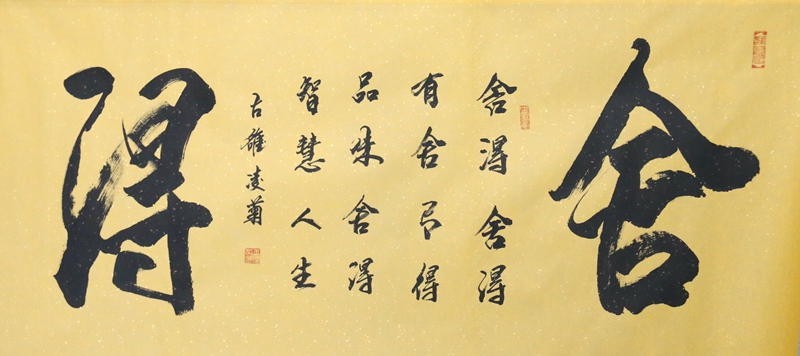 舍
舍得舍得
有舍即得
品味舍得
智慧人生
古雒凌菊
得